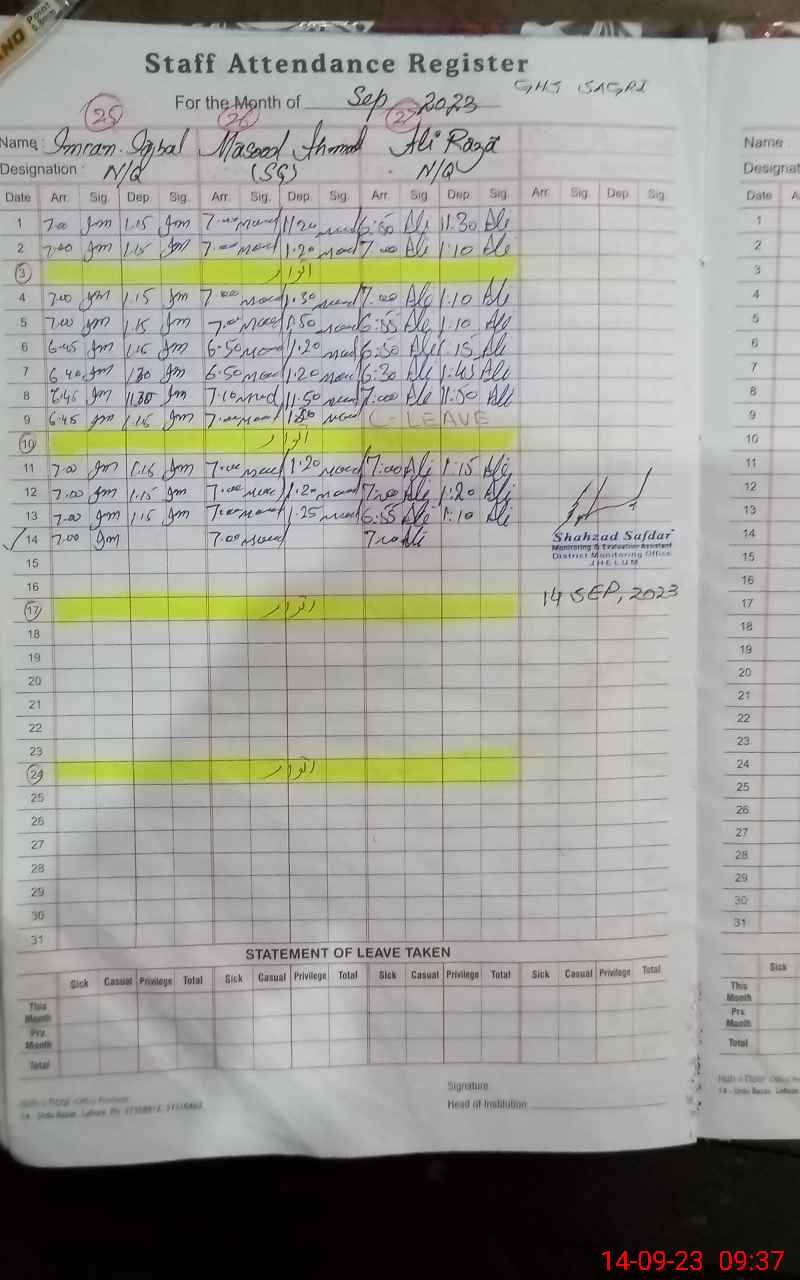 Staff Attendance Register
GHS SAGRI
For the Month of Sep 2023
25 26 27
Name : Imran Iqbal Masood Ahmad Ali Raza Name :
Designation : N/Q (SG) N/Q
Date Arr. Sig. Dep. Sig. Arr. Sig. Dep. Sig. Arr. Sig. Dep. Sig. Arr. Sig. Dep. Sig. Date Arr
1 7.00 Jm 1.15 Jm 7.00 11.20 6:50 Ali 11.30 Ali 1
2 7.00 Jm 1.15 Jm 7.00 1.20 7.00 Ali 1:10 Ali 2
3 اتوار 3
4 7.00 Jm 1.15 Jm 7.00 1.30 7.00 Ali 1.10 Ali 4
5 7.00 Jm 1.15 Jm 7.00 1.50 6:55 Ali 1:10 Ali 5
6 6.45 Jm 1.15 Jm 6.50 1.20 6:50 Ali 1:15 Ali 6
7 6.40 Jm 1.30 Jm 6.50 1.20 6:30 Ali 1:45 Ali 7
8 6.45 Jm 11.35 Jm 7.10 11.50 7:00 Ali 11.50 Ali 8
9 6.45 Jm 1.15 Jm 7.00 1.30 C-LEAVE 9
10 اتوار 10
11 7.00 Jm 1.15 Jm 7.00 1.20 7.00 Ali 1:15 Ali 11
12 7.00 Jm 1.15 Jm 7.00 1.20 7.00 Ali 1:20 Ali 12
13 7.00 Jm 1.15 Jm 7.00 1.25 6:55 Ali 1:10 Ali 13
14 7.00 Jm 7.00 7.00 Ali 14
Shahzad Safdar
Monitoring & Evaluation Assistant
District Monitoring Office
JHELUM
15 15
16 16
14 SEP, 2023
17 اتوار 17
18 18
19 19
20 20
21 21
22 22
23 23
24 اتوار 24
25 25
26 26
27 27
28 28
29 29
30 30
31 31
STATEMENT OF LEAVE TAKEN
Sick Casual Privilege Total Sick Casual Privilege Total Sick Casual Privilege Total Sick Casual Privilege Total Sick
This Month This Month
Prv. Month Prv. Month
Total Total
Signature
Head of Institution
14 - Urdu Bazar, Lahore. Ph:
14 - Urdu Bazar, Lahore
14-09-23 09:37